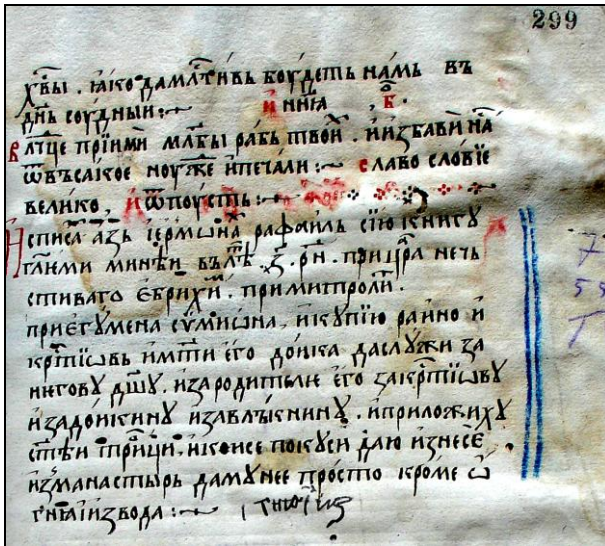 299
хв҃ы . ꙗко да мл҃тивь боудеть намь въ
дн҃ь соудныи :~ и нн҃ꙗ , б҃ .
вл҃чце прїими мл҃бы рабь твои . и избави на
ѿ въсакое ноужде и печали :~ славословїе
велико . и ѿпоусть :~
Исписа азь їермѡна рафаиль сїю книгу
гл҃еми минѣи въ лѣ . з҃ . рн҃ . при цр҃а нечь
стиваго ебрихи . при митроли .
при єгумена сѵмиѡна , и купїю раино и
крⷭтїѡвь имт҃и его доика да слꙋжи за
негову дш҃ꙋ . и за родителие его за крⷭтїѡвꙋ
и за доикинꙋ и за влькнинꙋ . и приложихꙋ
ст҃ѣи трⷪци . и кои се покуси да ю изнесе
из манастырь да мꙋ нее просто кроме ѡ
гнꙗ и звода :~
7